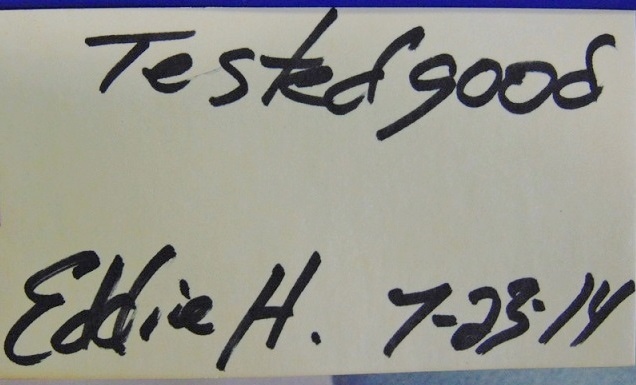 Tested good
Eddie H. 7-23-14